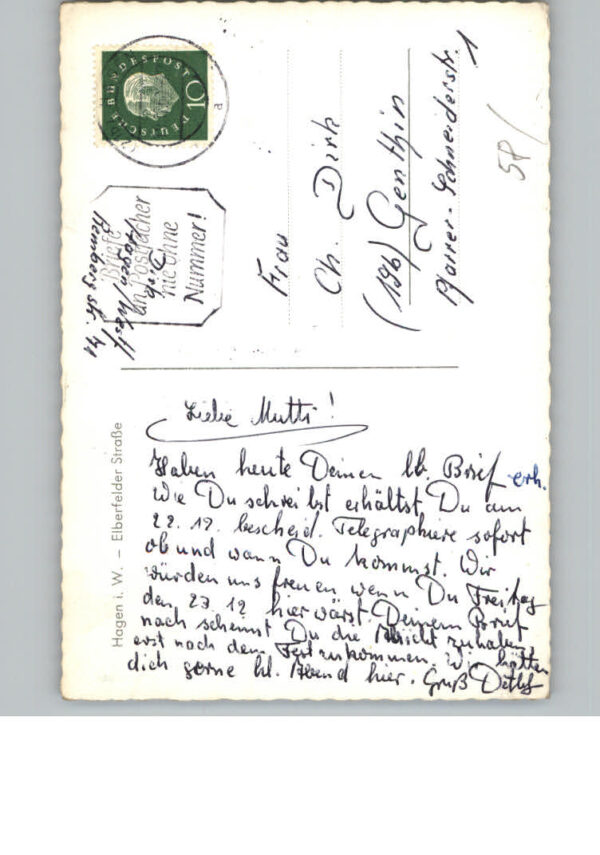 DEUTSCHE BUNDESPOST
10
Briefe
an Postfächer
nie ohne
Nummer!
Hagen / West
Rembergstr.
Frau
Ch. Dirk
(19b) Genthin
Pfarrer-Schneiderstr. 1
58/
Hagen i. W. – Elberfelder Straße
Liebe Mutti!
Haben heute Deinen lb. Brief erh.
Wie Du schreibst erhältst Du am
22. 12. bescheid. Telegraphiere sofort
ob und wann Du kommst. Wir
würden uns freuen wenn Du Freitag
den 23 12 hier wärst. Deinem Brief
nach scheinst Du die Absicht zuhaben
erst nach dem Fest zukommen. Wir hätten
dich gerne hl. Abend hier. Gruß Detlef